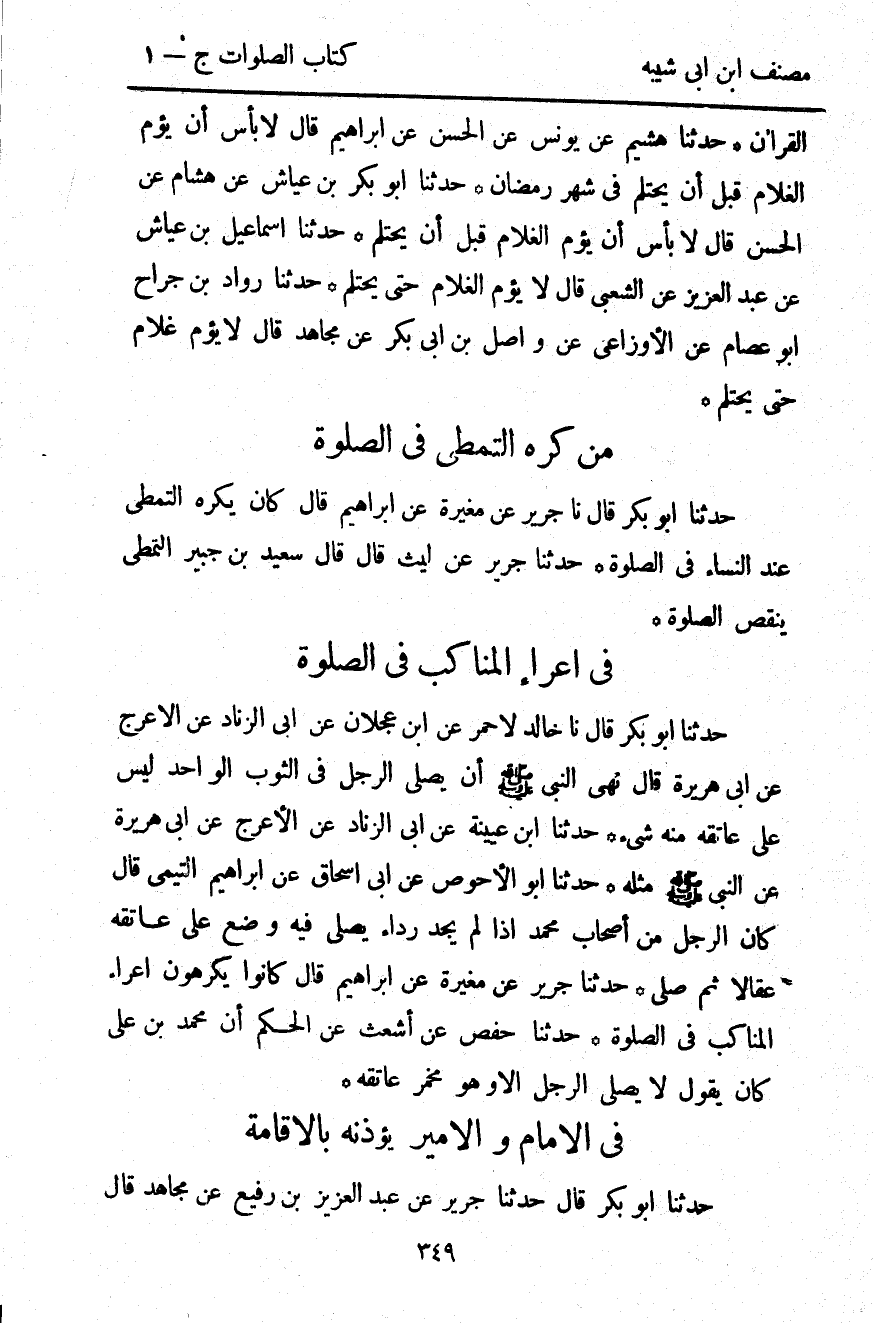 مصنف ابن ابى شيبه كتاب الصلوات ج – ١
القرآن * حدثنا هشيم عن يونس عن الحسن عن ابراهيم قال لابأس أن يؤم
الغلام قبل أن يحتلم فى شهر رمضان * حدثنا ابو بكر بن عياش عن هشام عن
الحسن قال لا بأس أن يؤم الغلام قبل أن يحتلم * حدثنا اسماعيل بن عياش
عن عبد العزيز عن الشعبى قال لا يؤم الغلام حتى يحتلم * حدثنا رواد بن جراح
ابو عصام عن الأوزاعى عن و اصل بن ابى بكر عن مجاهد قال لايؤم غلام
حتى يحتلم *
من كره التمطى فى الصلوة
حدثنا ابو بكر قال نا جرير عن مغيرة عن ابراهيم قال كان يكره التمطى
عند النساء فى الصلوة * حدثنا جرير عن ليث قال قال سعيد بن جبير التمطى
ينقص الصلوة *
فى اعراء المناكب فى الصلوة
حدثنا ابو بكر قال نا خالد لاحمر عن ابن عجلان عن ابى الزناد عن الاعرج
عن ابى هريرة قال نهى النبى ﷺ أن يصلى الرجل فى الثوب الواحد ليس
على عاتقه منه شىء * حدثنا ابن عيينة عن ابى الزناد عن الأعرج عن ابى هريرة
عن النبى ﷺ مثله * حدثنا ابو الأحوص عن ابى اسحاق عن ابراهيم التيمى قال
كان الرجل من أصحاب محمد اذا لم يجد رداء يصلى فيه وضع على عـاتقه
عقالا ثم صلى * حدثنا جرير عن مغيرة عن ابراهيم قال كانوا يكرهون اعراء
المناكب فى الصلوة * حدثنا حفص عن أشعث عن الحـكم أن محمد بن على
كان يقول لا يصلى الرجل الا و هو مخمر عاتقه *
فى الامام و الامير يؤذنه بالاقامة
حدثنا ابو بكر قال حدثنا جرير عن عبد العزيز بن رفيع عن مجاهد قال
٣٤٩